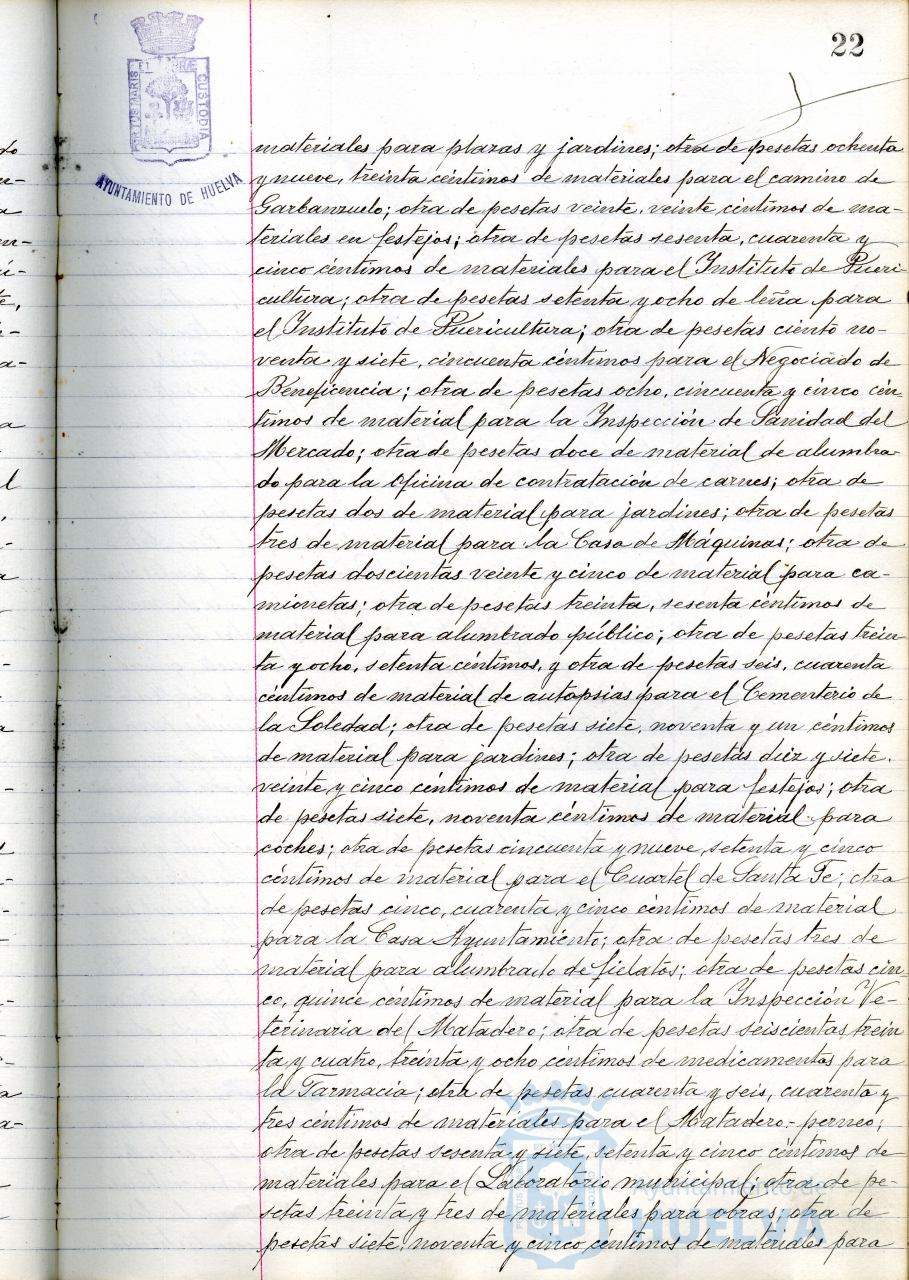 22
PORTUS MARIS ET TERRÆ CUSTODIA
AYUNTAMIENTO DE HUELVA
materiales para plazas y jardines; otra de pesetas ochenta
y nueve, treinta céntimos de materiales para el camino de
Garbanzuelo; otra de pesetas veinte, veinte céntimos de ma-
teriales en festejos; otra de pesetas sesenta, cuarenta y
cinco céntimos de materiales para el Instituto de Pueri-
cultura; otra de pesetas setenta y ocho de leña para
el Instituto de Puericultura; otra de pesetas ciento no-
venta y siete, cincuenta céntimos para el Negociado de
Beneficencia; otra de pesetas ocho, cincuenta y cinco cén-
timos de material para la Inspección de Sanidad del
Mercado; otra de pesetas doce de material de alumbra-
do para la oficina de contratación de carnes; otra de
pesetas dos de material para jardines; otra de pesetas
tres de material para la Casa de Máquinas; otra de
pesetas doscientas veinte y cinco de material para ca-
mionetas; otra de pesetas treinta, sesenta céntimos de
material para alumbrado público; otra de pesetas trein-
ta y ocho, setenta céntimos, y otra de pesetas seis, cuarenta
céntimos de material de autopsias para el Cementerio de
la Soledad; otra de pesetas siete, noventa y un céntimos
de material para jardines; otra de pesetas diez y siete,
veinte y cinco céntimos de material para festejos; otra
de pesetas siete, noventa céntimos de material para
coches; otra de pesetas cincuenta y nueve, setenta y cinco
céntimos de material para el Cuartel de Santa Fe; otra
de pesetas cinco, cuarenta y cinco céntimos de material
para la Casa Ayuntamiento; otra de pesetas tres de
material para alumbrado de fielatos; otra de pesetas cin-
co, quince céntimos de material para la Inspección Ve-
terinaria del Matadero; otra de pesetas seiscientas trein
ta y cuatro, treinta y ocho céntimos de medicamentos para
la Farmacia; otra de pesetas cuarenta y seis, cuarenta y
tres céntimos de materiales para el Matadero-perneo;
otra de pesetas sesenta y siete, setenta y cinco céntimos de
materiales para el Laboratorio municipal; otra de pe-
setas treinta y tres de materiales para obras; otra de
pesetas siete, noventa y cinco céntimos de materiales para
Ayuntamiento de
HUELVA